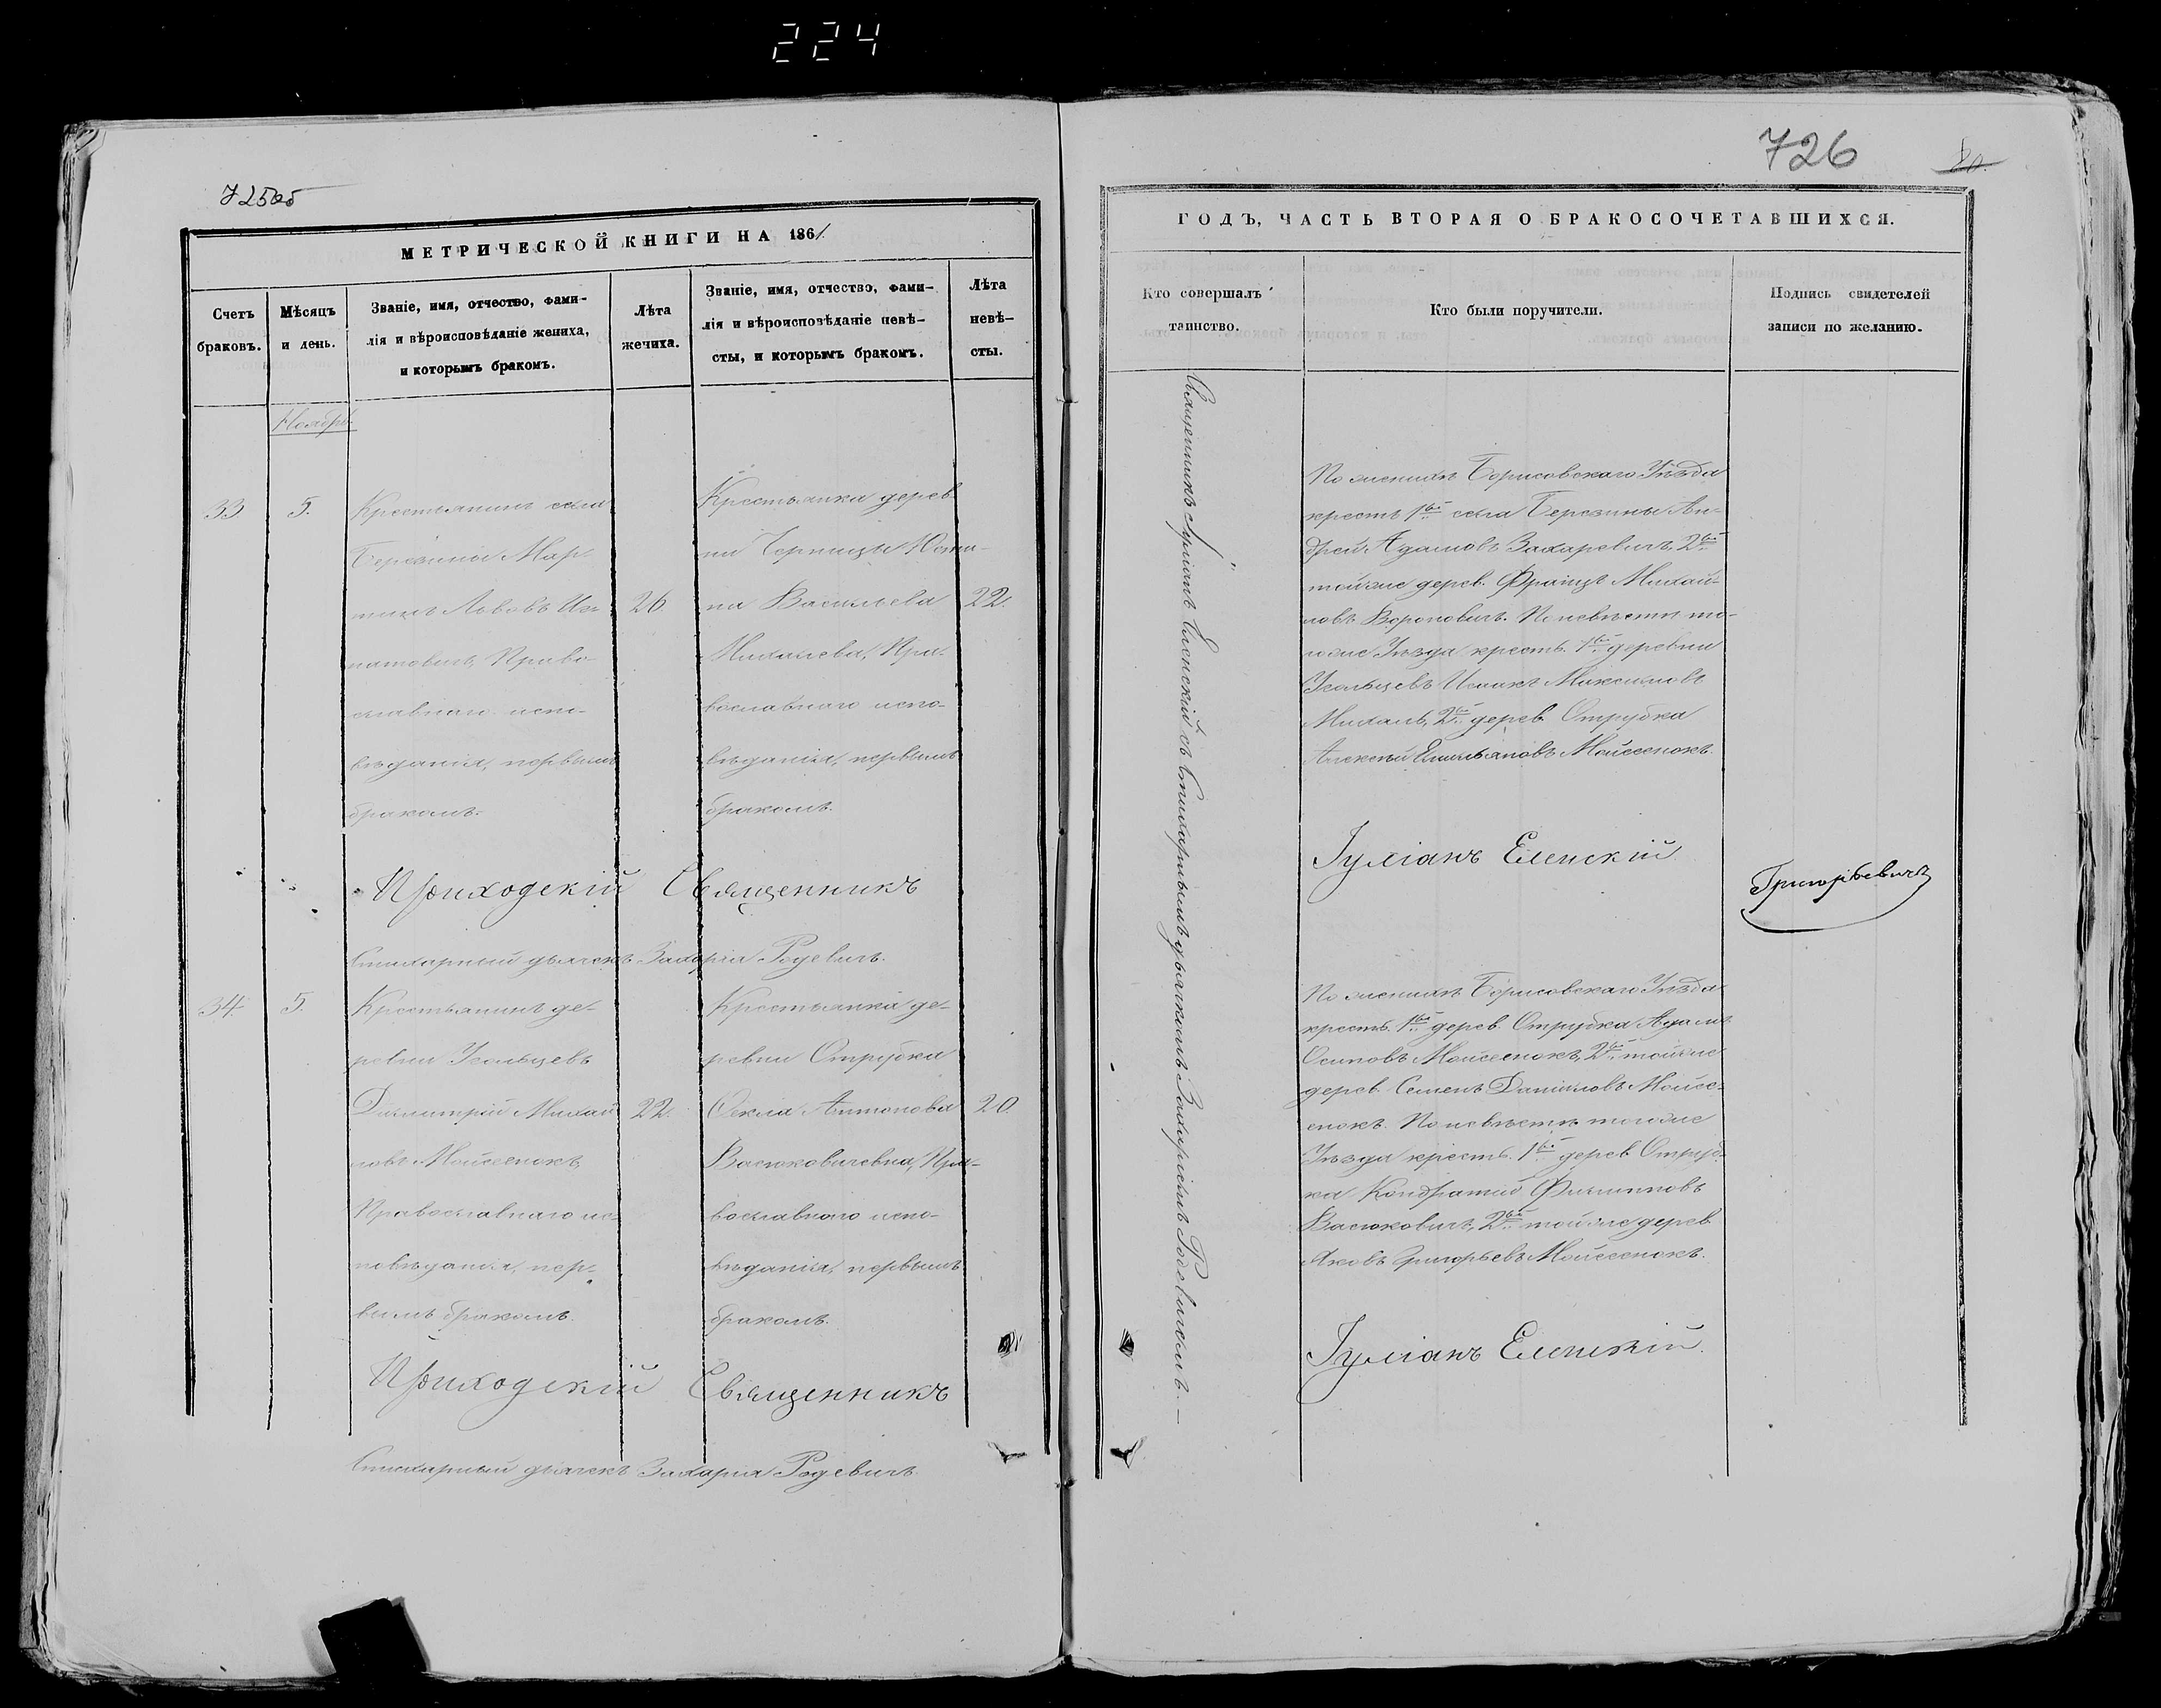 224
725об
МЕТРИЧЕСКОЙ КНИГИ НА 1861.
Счетъ браковъ.
Мѣсяцъ и день.
Званіе, имя, отчество, фами-
лія и вѣроисповѣданіе жениха,
и которымъ бракомъ.
Лѣта жениха.
Званіе, имя, отчество, фами-
лія и вѣроисповѣданіе невѣ-
сты, и которымъ бракомъ.
Лѣта невѣ-
сты.
Ноябрь
33
5.
Крестьянинъ села
Березины Мар-
тинъ Львовъ Иг-
натовичъ, Право-
славнаго испо-
вѣданія, первымъ
бракомъ.
26
Крестьянка дерев-
ни Черницы Юсти-
на Васильева
Михалева, Пра-
вославнаго испо-
вѣданія, первымъ
бракомъ.
22.
Приходскій Священникъ
Стихарный дьячекъ Захарія Родевичъ.
34
5.
Крестьянинъ де-
ревни Усольцевъ
Димитрій Михай-
ловъ Мойсеенокъ,
Православнаго ис-
повѣданія, пер-
вымъ бракомъ.
22.
Крестьянка де-
ревни Отрубка
Фекла Антонова
Васюковичевна, Пра-
вославнаго испо-
вѣданія, первымъ
бракомъ.
20.
Приходскій Священникъ
Стихарный дьячекъ Захарія Родевичъ.
726
80.
ГОДЪ, ЧАСТЬ ВТОРАЯ О БРАКОСОЧЕТАВШИХСЯ.
Кто совершалъ
таинство.
Кто были поручители.
Подпись свидетелей
записи по желанию.
Священникъ Іуліанъ Еленскій съ Стихарнымъ дьячкомъ Захаріемъ Родевичемъ.—
По женихѣ Борисовскаго Уѣзда
крестъ. 1й села Березины Ан-
дрей Адамовъ Захаревичъ, 2й
той же дерев. Францъ Михай-
ловъ Вороновичъ. По невѣстѣ то-
го же Уѣзда крестъ. 1й деревни
Усольцевъ Исаакъ Максимовъ
Михаль, 2й дерев. Отрубка
Алексѣй Емильяновъ Мойсеенокъ.
Іуліанъ Еленскій
Григорьевичъ
По женихѣ Борисовскаго Уѣзда
крестъ. 1й дерев. Отрубка Адамъ
Осиповъ Мойсеенокъ, 2й той же
дерев. Семенъ Даниловъ Мойсе-
енокъ. По невѣстѣ того же
Уѣзда крестъ. 1й дерев. Отруб-
ка Кондратій Филипповъ
Васюковичъ, 2й той же дерев.
Яковъ Григорьевъ Мойсеенокъ.
Іуліанъ Еленскій.